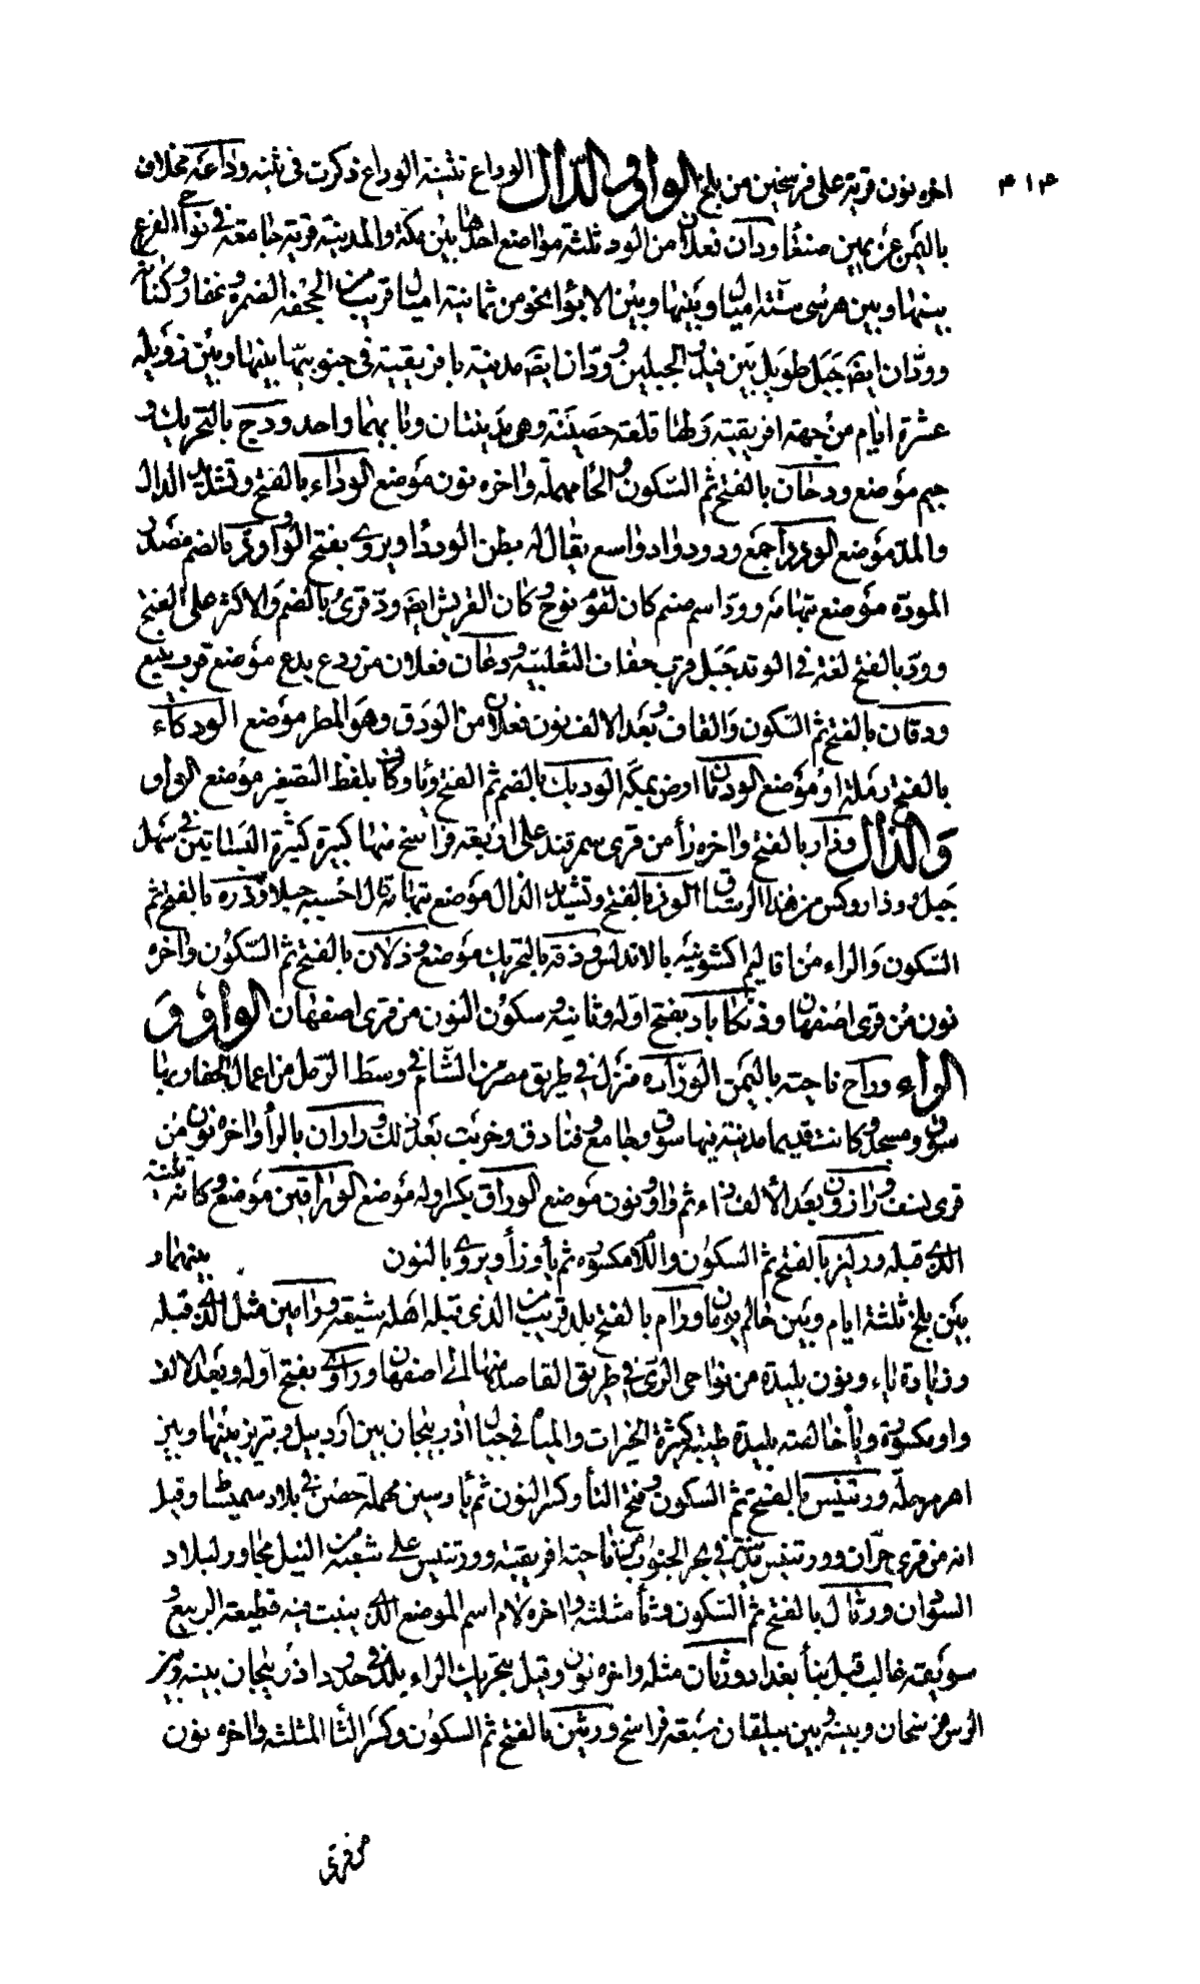 ٤١٤
اخره نون قرية على فرسخين من بلخ الواو والدال الوداع ثنية الوداع ذكرت فى ثنيه وداعة مخلاف
باليمن عن يمين صنعا ودان فعلان من الود ثلثة مواضع احدها بين مكة والمدينة قرية جامعة فى نواحى الفرع
بينها وبين هرشى ستة اميال وبينها وبين الابوا نحو من ثمانية اميال قريب من الجحفه لضمره وغفار وكنانة
وودان ايضا جبل طويل بين فيد والجبلين وودان ايضا مدينة بافريقية فى جنوبيها بينها وبين زويله
عشرة ايام من جهة افريقية ولها قلعة حصينة وهى مدينتان وبابهما واحد ودج بالتحريك و
جيم موضع ودحان بالفتح ثم السكون والحا مهملة واخره نون موضع الوداء بالفتح وتشديد الدال
والمد موضع الودداء جمع ودود واد واسع يقال له بطن الوددا ويروى بفتح الواو ود بالضم مصدر
المودة موضع بتهامة وود اسم صنم كان لقوم نوح وكان لقريش ايضا ود قرئ بالضم والاكثر على الفتح
وود بالفتح لغة فى الوتد جبل قرب حفاف الثعلبية ودعان فعلان من ودع يدع موضع قرب ينبع
ودقان بالفتح ثم السكون والقاف وبعد الالف نون فعلان من الودق وهو المطر موضع الودكاء
بالفتح رملة او موضع الودنان ارض بمكه الوديك بالضم ثم الفتح ويا وكاف بلفظ التصغير موضع الواو
والذال وذار بالفتح واخره رأ من قرى سمرقند على اربعة فراسخ منها كبيرة كثيرة البساتين فى سهل
جبل وذار وكس من هذا الرستاق الوذ بالفتح وتشديد الذال موضع بتهامة قال احسبه جبلا وذره بالفتح ثم
السكون والراء من اقاليم اكشونية بالاندلس وذفة بالتحريك موضع وذلان بالفتح ثم السكون واخره
نون من قرى اصفهان وذنكاباد بفتح اوله وثانيه وسكون النون من قرى اصفهان الواو و
الراء وراح ناحية باليمن الورادة منزل فى طريق مصر من الشام فى وسط الرمل من اعمال الجفار بها
سوق ومسجد وكانت قديما مدينة فيها سوق وجامع وفنادق وخربت بعد ذلك وراران بالرأ واخره نون من
قرى نسف ورازون بعد الالف زاء ثم واو ونون موضع الوراق بكسر اوله موضع الوراقين موضع كانه تثنية
الذى قبله ورليز بالفتح ثم السكون واللام مكسوره ثم يا وزأ ويروى بالنون بينها و
بين بلخ ثلثة ايام وبين خلم يومان ورام بالفتح بلد قريب من الذى قبله اهله شيعة ورامين مثل الذى قبله
وزيادة ياء ونون بليدة من نواحى الرى فى طريق القاصد منها الى اصفهان وراوى بفتح اوله وبعد الالف
واو مكسورة ويأ خالصة بليدة طيبة كثيرة الخيرات والمياه فى جبال اذربيجان بين اردبيل وتبريز بينها وبين
اهر مرحلة ورتنيس بالفتح ثم السكون وفتح التأ وكسر النون ثم يأ وسين مهملة حصن فى بلاد سميساط وقيل
انه من قرى حران وورتنيس مدينة فى بحر الجنوب من ناحية افريقية وورتنيس على شعبة من النيل مجاور لبلاد
السودان ورثال بالفتح ثم السكون وثأ مثلثة واخره لام اسم الموضع الذى بنيت فيه قطيعة الربيع و
سويقة غالب قبل بنأ بغداد ورثان مثله واخره نون وقيل بتحريك الراء بلد فى حدود اذربيجان بينه وبين
الرس فرسخان وبينه وبين بيلقان سبعة فراسخ ورثين بالفتح ثم السكون وكسر الثا المثلثة واخره نون
من قرى